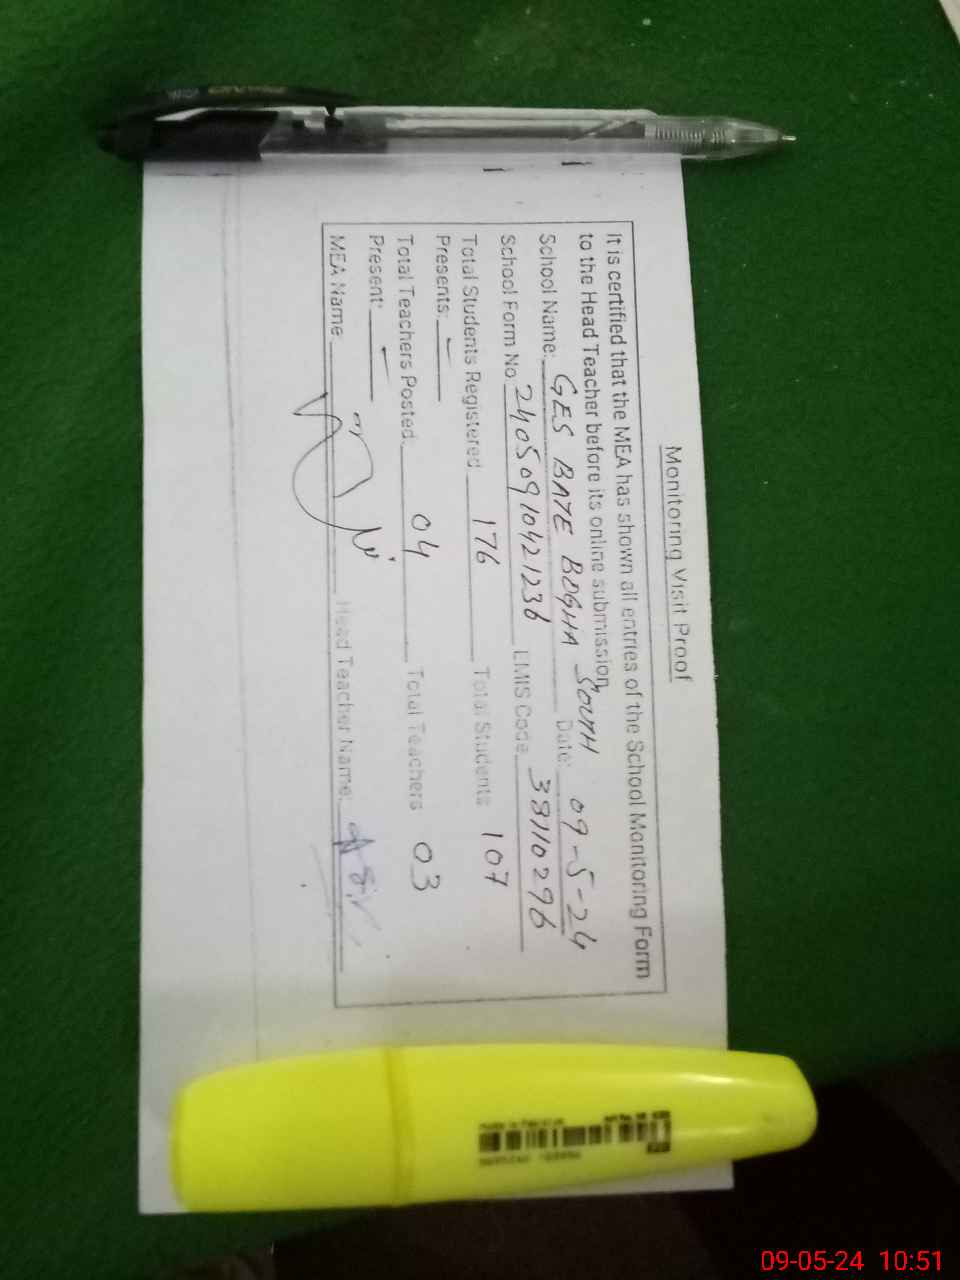 Monitoring Visit Proof
It is certified that the MEA has shown all entries of the School Monitoring Form
to the Head Teacher before its online submission
School Name: GES BATE BOGHA SOUTH Date: 09-5-24
School Form No. 24050910421236 EMIS Code 38110296
Total Students Registered 176 Total Students 107
Presents:
Total Teachers Posted 04 Total Teachers 03
Present:
MEA Name: Head Teacher Name:
09-05-24 10:51